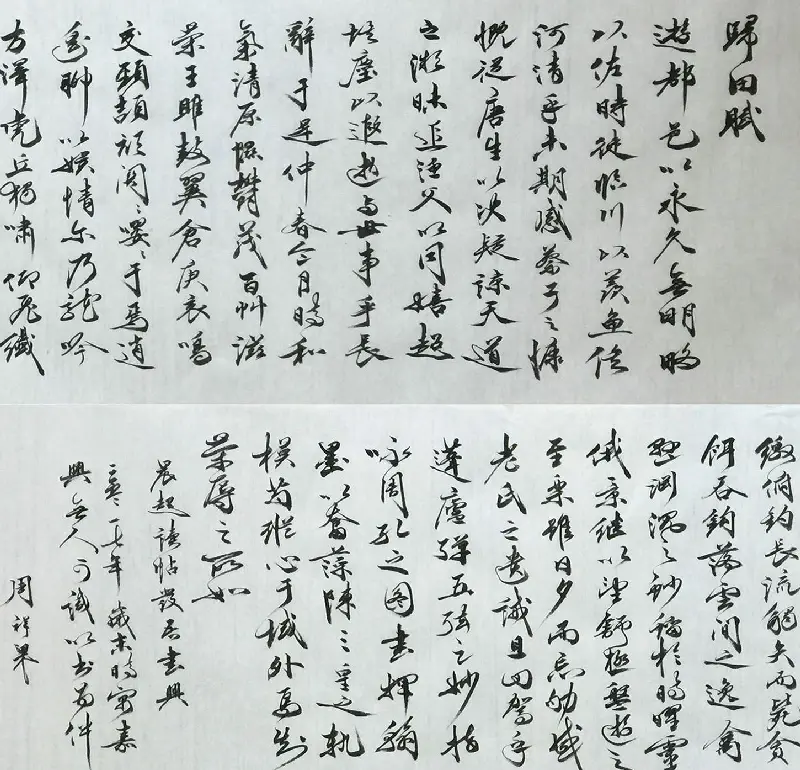 歸田賦
遊都邑以永久無明略
以佐時徒臨川以羨魚俟
河清乎未期感蔡子之慷
慨從唐生以決疑諒天道
之微昧追漁父以同嬉超
埃塵以遐逝與世事乎長
辭于是仲春令月時和
氣清原隰鬱茂百艸滋
榮王雎鼓翼倉庚哀鳴
交頸頡頏關〻嚶〻于焉逍
遙聊以娛情爾乃龍吟
方澤虎丘獨嘯仰飛纖
繳俯釣長流觸矢而斃貪
餌吞鉤落雲間之逸禽
懸淵沉之魦鰡於時曜靈
俄景繼以望舒極盤遊之
至樂雖日夕而忘劬感
老氏之遺誡且回駕乎
蓬廬彈五弦之妙指
咏周孔之圖書揮翰
墨以奮藻陳三皇之軌
模苟縱心于域外焉知
榮辱之所如
晨起讀帖發居書興
二零一七年歲末時寓嘉
興無人可識以書為伴
周